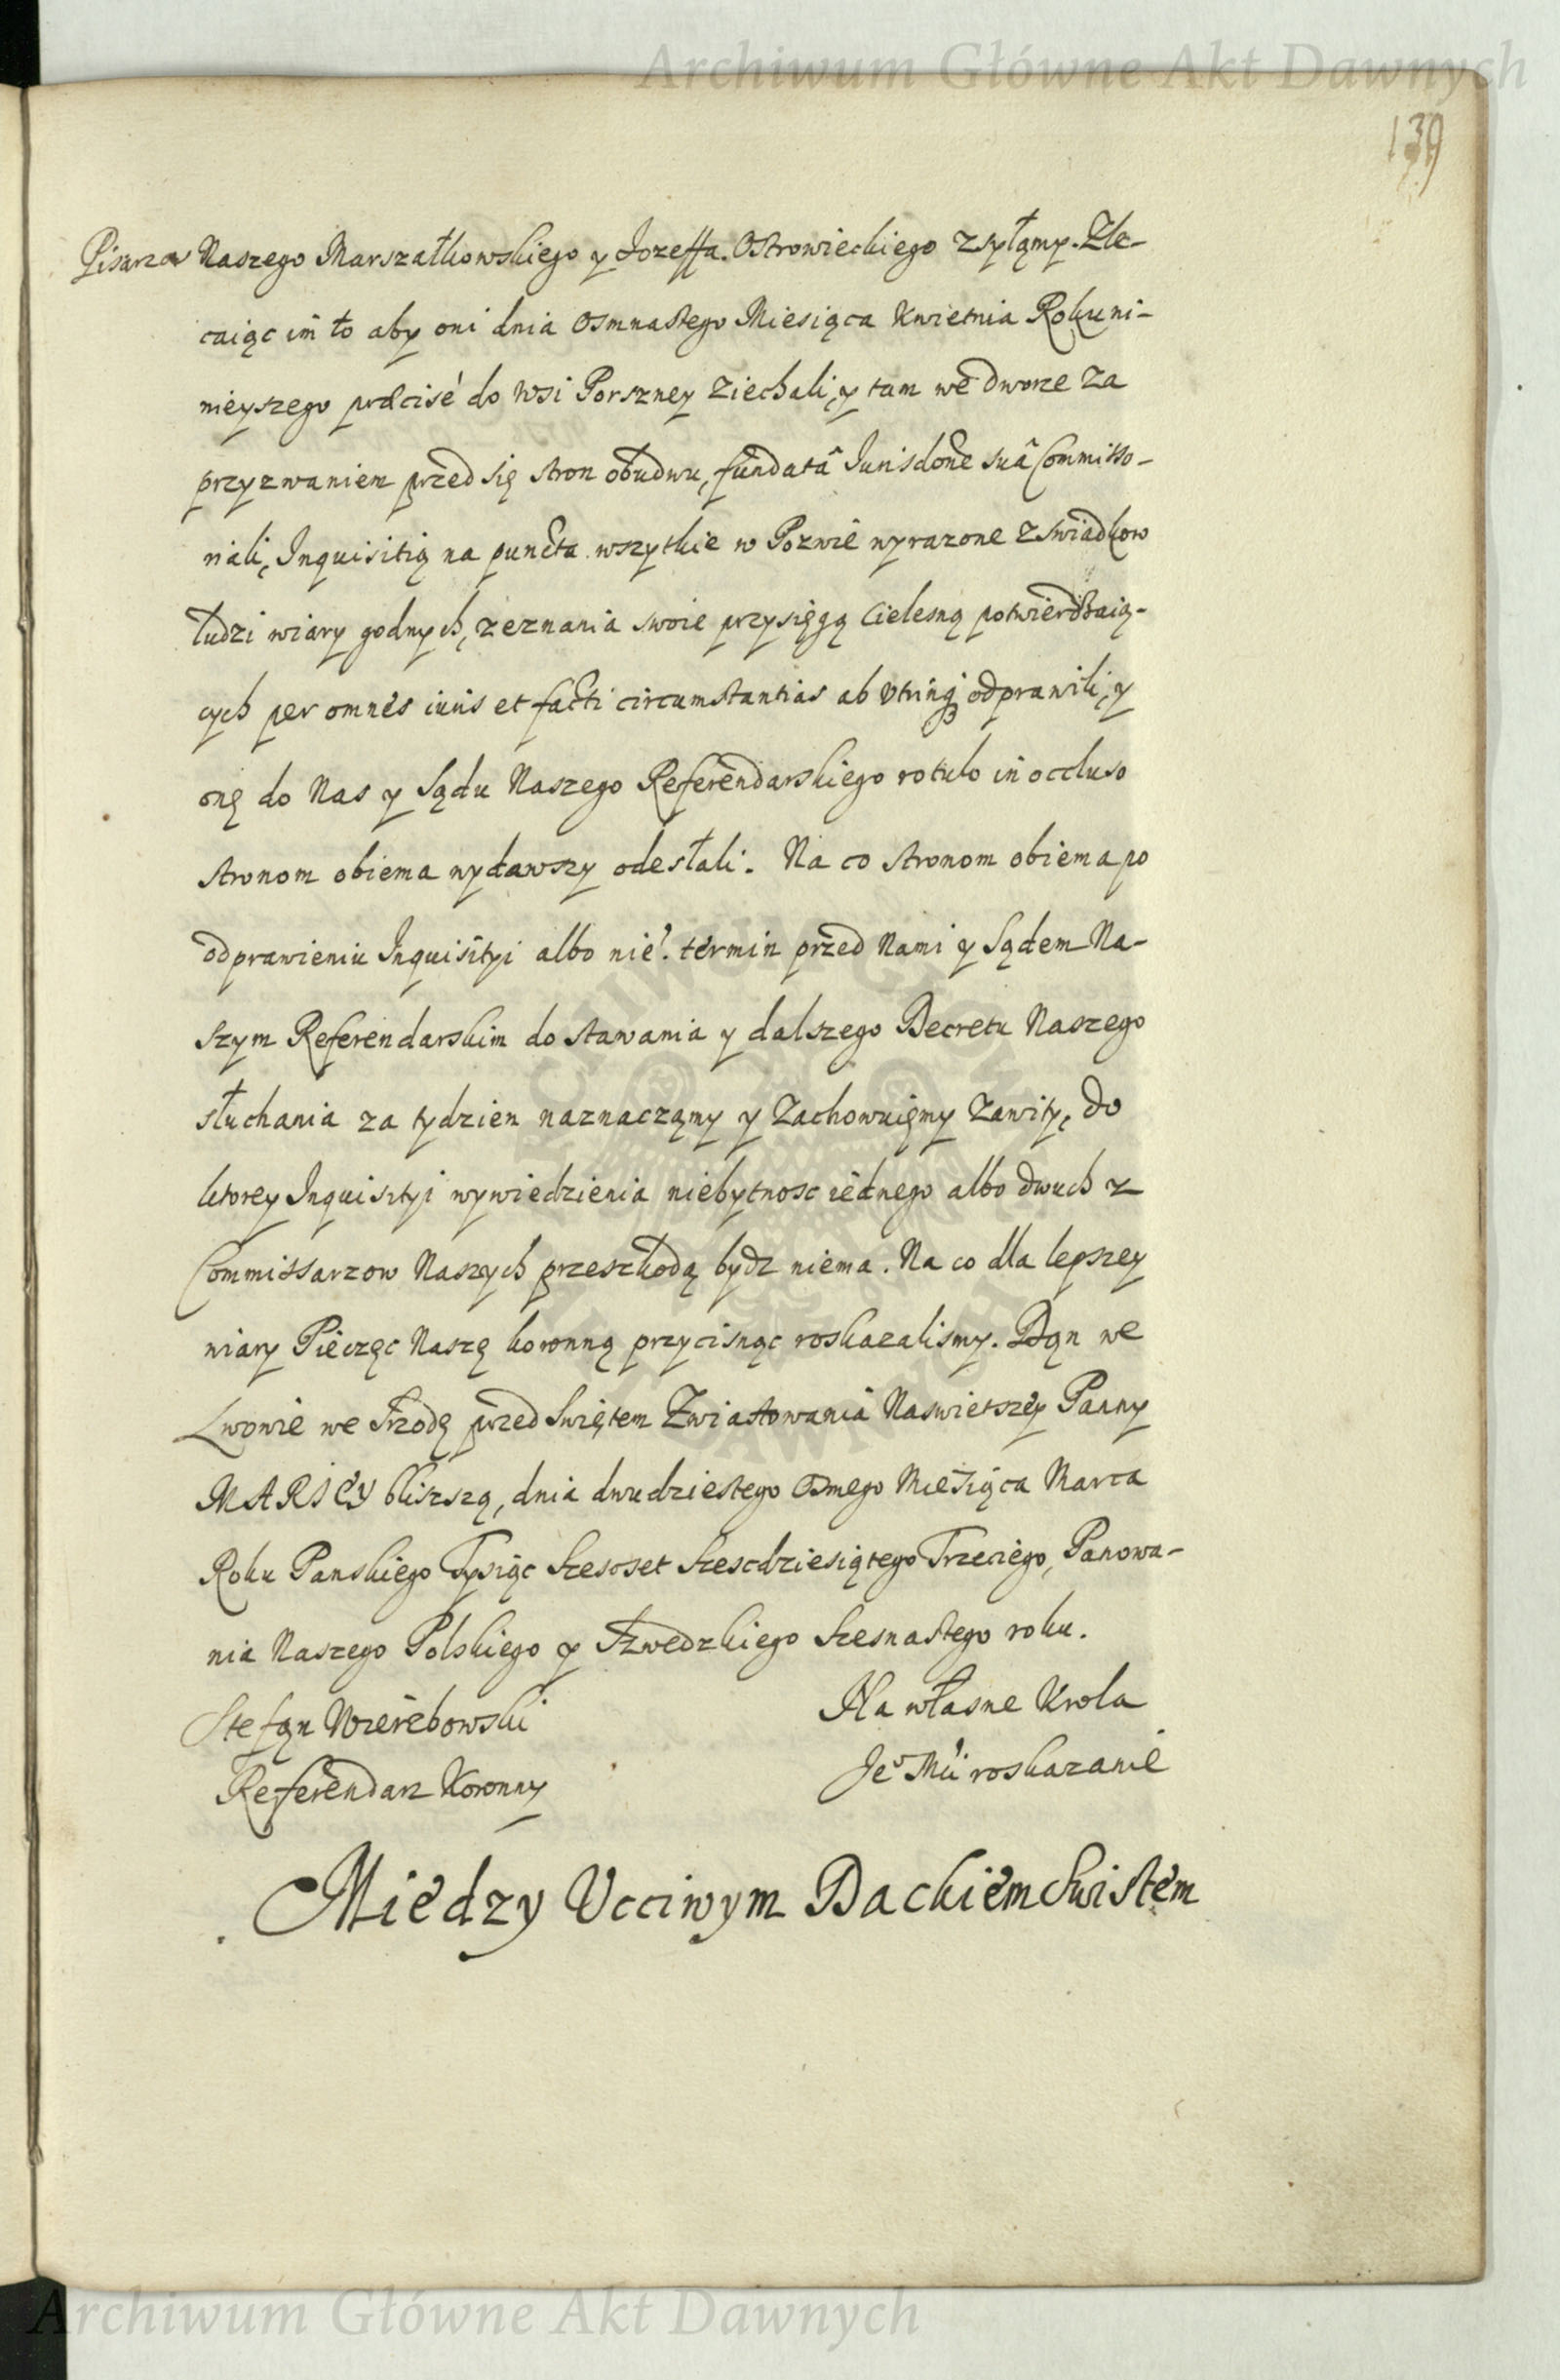 Archiwum Główne Akt Dawnych
139
Pisarza Naszego Marszałkowskiego y Jozeffa Ostrowieckiego zsyłamy. Zle-
caiąc im to aby oni dnia osmnastego Miesiąca Kwietnia Roku ni-
nieyszego præcisé do Wsi Porszney ziechali, y tam we dworze za
przyzwaniem przed się stron obudwu, fundatâ Jurisdone suâ Commisso-
riali, Inquisitią na puncta wszytkie w Pozwie wyrazone z swiadkow
ludzi wiary godnych, zeznania swoie przysięgą cielesną potwierdzaią-
cych per omnes iuris et facti circumstantias ab utrinq odprawili, y
onę do Nas y Sądu Naszego Referendarskiego rotulo in occluso
stronom obiema wydawszy odesłali. Na co stronom obiema po
odprawieniu Inquisityi albo nié. termin przed Nami y Sądem Na-
szym Referendarskim do stawania y dalszego Decretu Naszego
słuchania za tydzien naznaczamy y zachowuięmy zawity, do
ktorey Inquisityi wywiedzienia niebytnosc iednego albo dwuch z
Commissarzow Naszych przeszkodą bydz niema. Na co dla lepszey
wiary Pieczęc Naszę koronną przycisnąc roskazalismy. Dąn we
Lwowie we Srzodę przed Swiętem Zwiastowania Naswietszey Panny
MARIEY bliszszą, dnia dwudziestego osmego Miesiąca Marca
Roku Panskiego Tysiąc Szescset Szescdziesiątego Trzeciego, Panowa-
nia Naszego Polskiego y Szwedzkiego Szesnastego roku.
Stefąn Wierebowski
Na własne Krola
Referendarz Koronny
Jeo Mći roskazanie
Miedzy Ucciwym Dackiem Swistem
Archiwum Główne Akt Dawnych